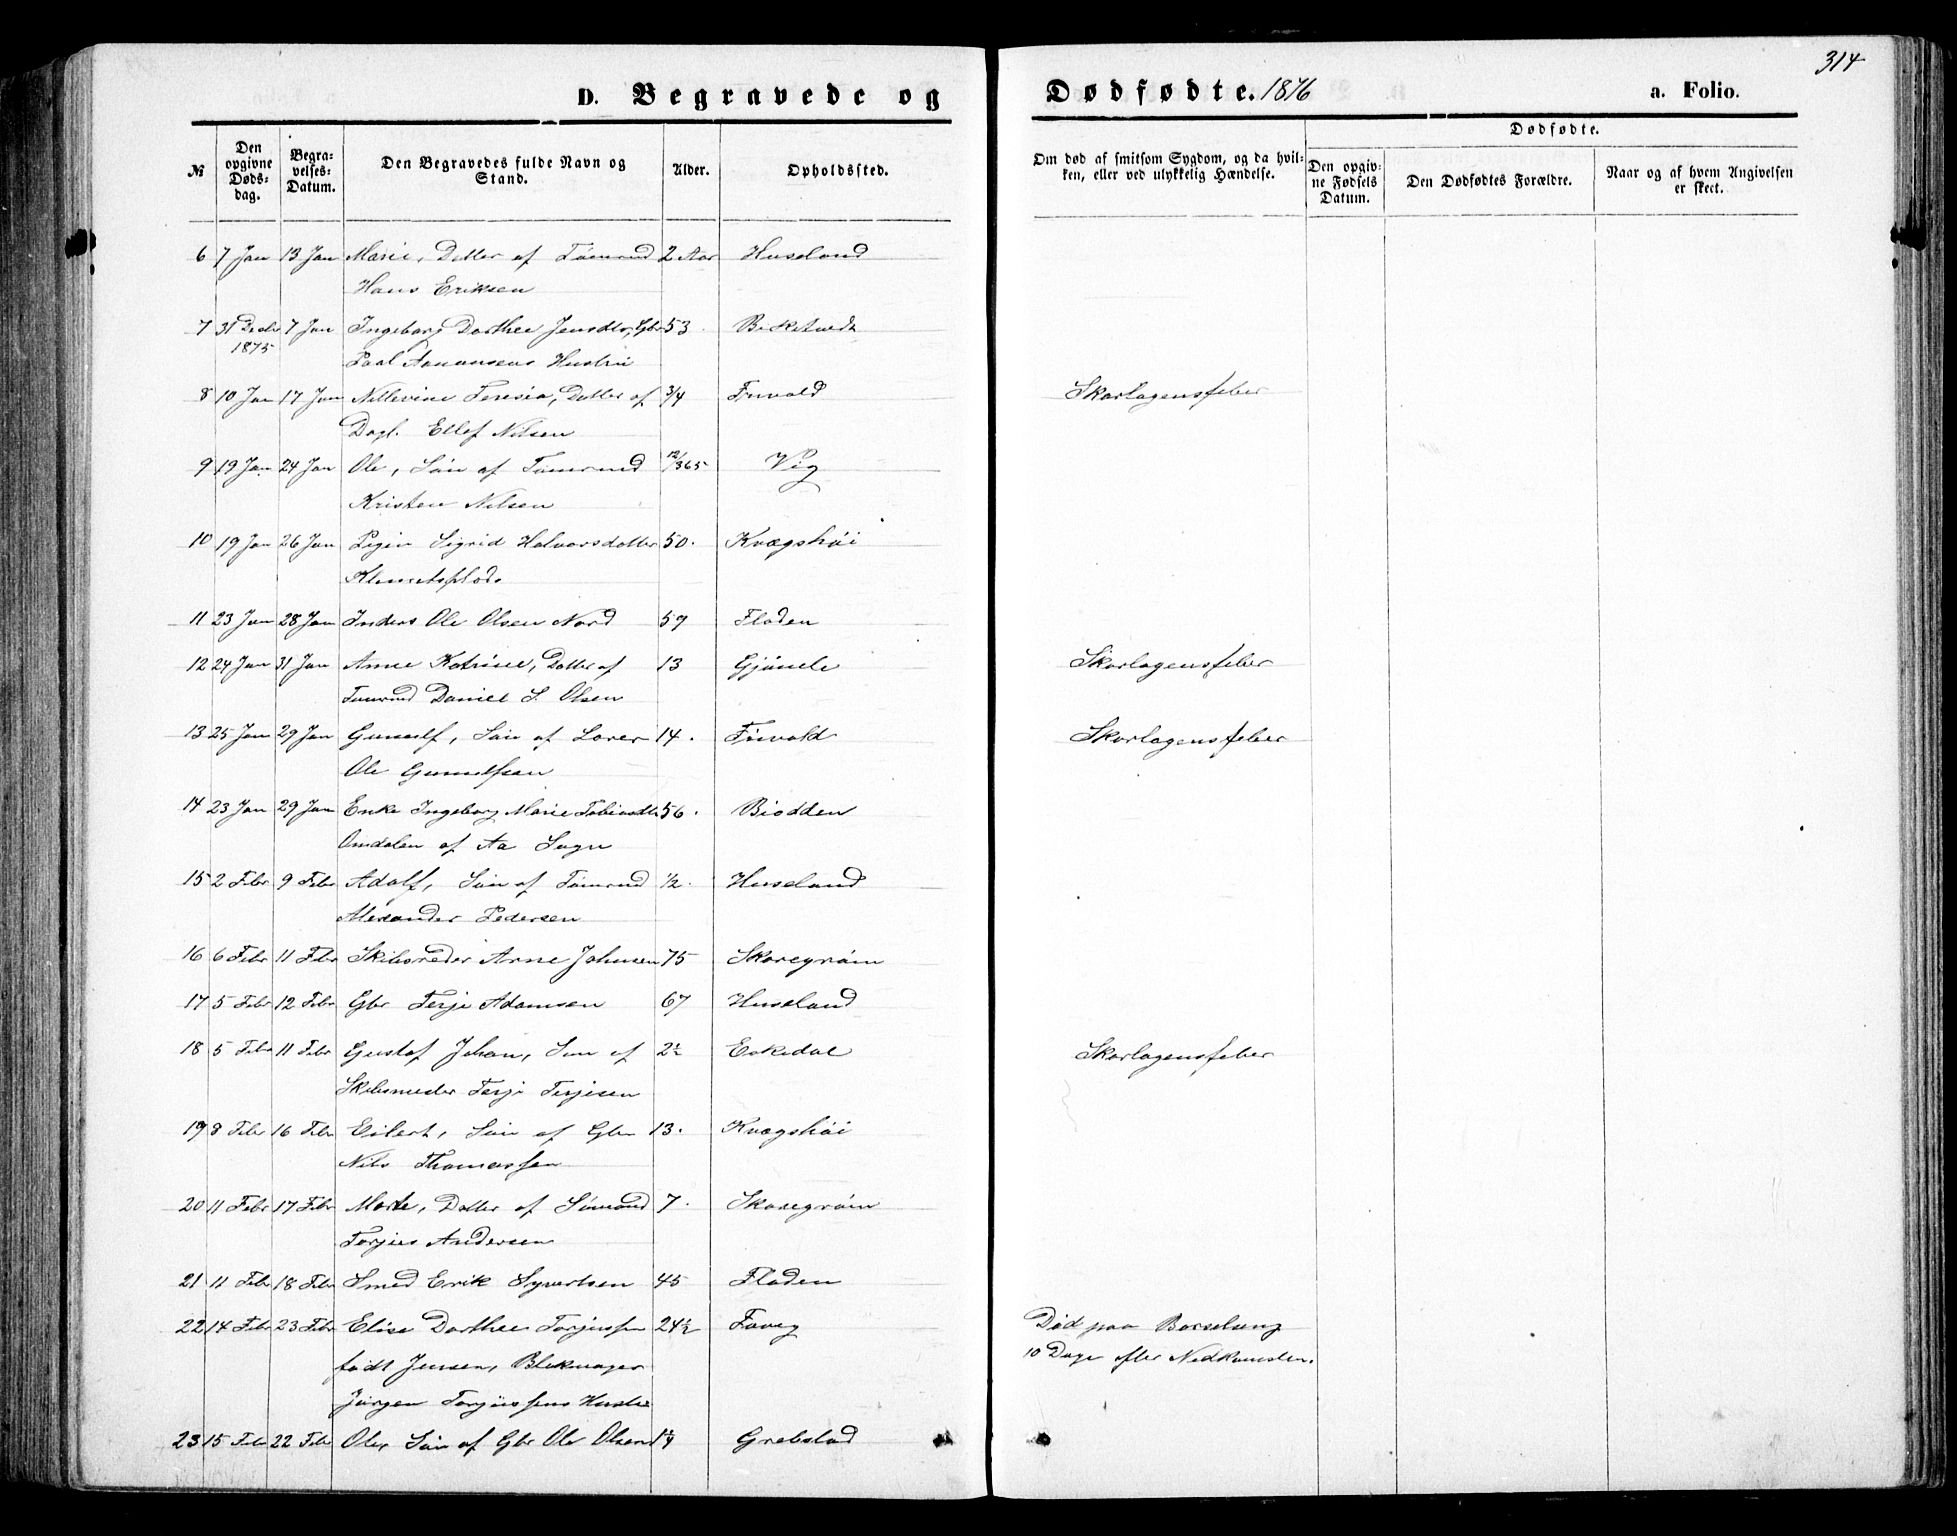 314
D. Begravede og Dødfødte. 1876 a. Folio.
№
Den opgivne Dødsdag.
Begravelses-Datum.
Den Begravedes fulde Navn og Stand.
Alder.
Opholdssted.
Om død af smitsom Sygdom, og da hvilken, eller ved ulykkelig Hændelse.
Dødfødte.
Den opgivne Fødsels Datum.
Den Dødfødtes Forældre.
Naar og af hvem Angivelsen er skeet.
6 7 Jan 13 Jan Marie, Datter af Tømmd 2 Aar Huseland
Hans Eriksen
7 31 Decbr 7 Jan Ingeborg Dorthea Jensdtr, Gbr 53.
1875
Paal Aanansens Hustru
8 10 Jan 17 Jan Nillevine Teresia, Datter af 3/4 Skarlagensfeber
Dagl. Ellef Nilsen
9 19 Jan 24 Jan Ole, Søn af Tømmd 12/365 Vig
Kristen Nilsen
10 19 Jan 26 Jan Pigen Sigrid Halvorsdatter 50. Kvægshøi
11 23 Jan 28 Jan Inders Ole Olsen Nord 59 Fladen
12 24 Jan 31 Jan Anne Katrine, Datter af 13 Skarlagensfeber
Tømmd Daniel S. Olsen
13 25 Jan 29 Jan Gunulf, Søn af 14. Skarlagensfeber
Ole Gunulfsen
14 23 Jan 29 Jan Enke Ingeborg Marie Tobiasdtr 56. Biodden
Omdalen af Aa Sogn
15 2 Febr 9 Febr Adolf, Søn af Tømmd 1/2. Huseland
Alexander Pedersen
16 6 Febr 11 Febr Skibsreder Arne Johnsen 75 Skaregrøm
17 5 Febr 12 Febr Gbr Terje Adamsen 67 Huseland
18 5 Febr 11 Febr Gustaf Johan, Søn af 2½ Eskedal Skarlagensfeber
Terje Terjesen
19 8 Febr 16 Febr Eilert, Søn af Gbr 13. Kvægshøi
Nils Thomassen
20 11 Febr 17 Febr Marte, Datter af Sømand 7. Skaregrøm
Torjus Andersen
21 11 Febr 18 Febr Smed Erik Syvertsen 45 Fladen
22 14 Febr 23 Febr Elise Dorthea Torjussen 24½ Død paa Barselseng
født Jensen, Blokmager 10 Dage efter Nedkomsten.
Jørgen Torjussens Hustru
23 15 Febr 22 Febr Ole, Søn af Gbr Ole Olsen 1¼ Grebstad